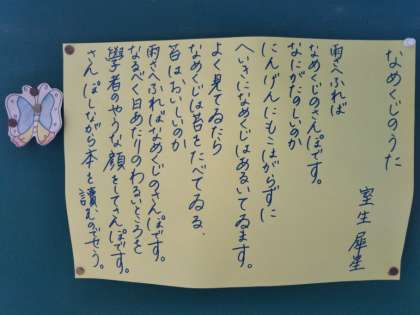 なめくじのうた
室生犀星
雨さへふれば
なめくじのさんぽです。
なにがたのしいのか
にんげんにもこはがらずに
へいきになめくじはあるいてゐます。
よく見てゐたら
なめくじは苔をたべてゐる、
苔はおいしいのか
雨さへふればなめくじのさんぽです。
なるべく日あたりのわるいところを
學者のやうな顔をしてさんぽです。
さんぽしながら本を讀むのでせう。